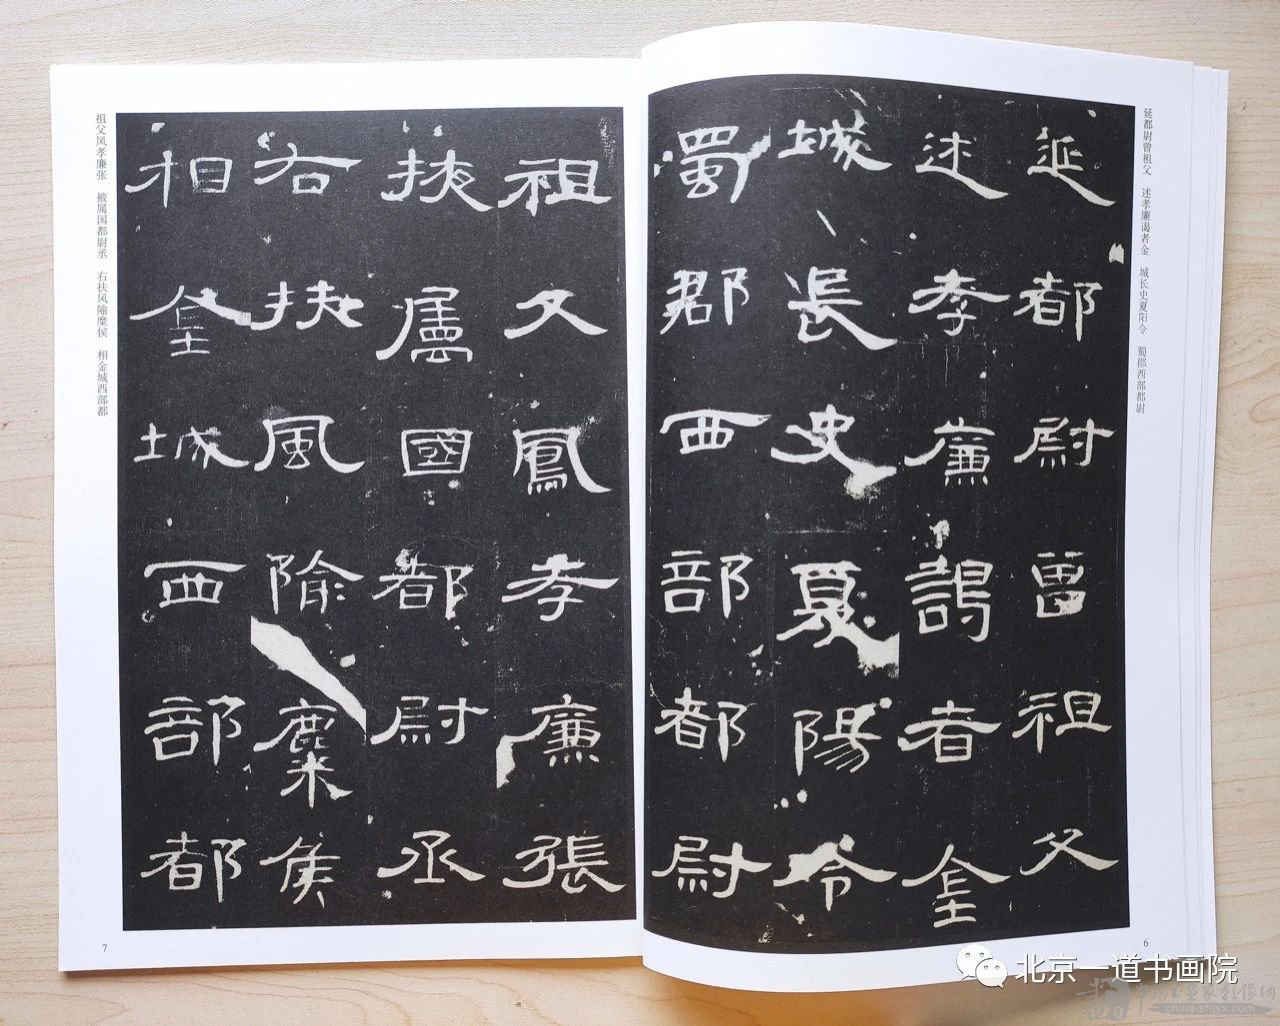 延都尉曾祖父　述孝廉谒者金　城长史夏阳令　蜀郡西部都尉
延都尉曾祖父
述孝廉謁者金
城長史夏陽令
蜀郡西部都尉
6
祖父鳳孝廉張
掖屬國都尉丞
右扶風隃麋侯
相金城西部都
祖父凤孝廉张　掖属国都尉丞　右扶风隃糜侯　相金城西部都
7
北京一道书画院
china-shjyx.com